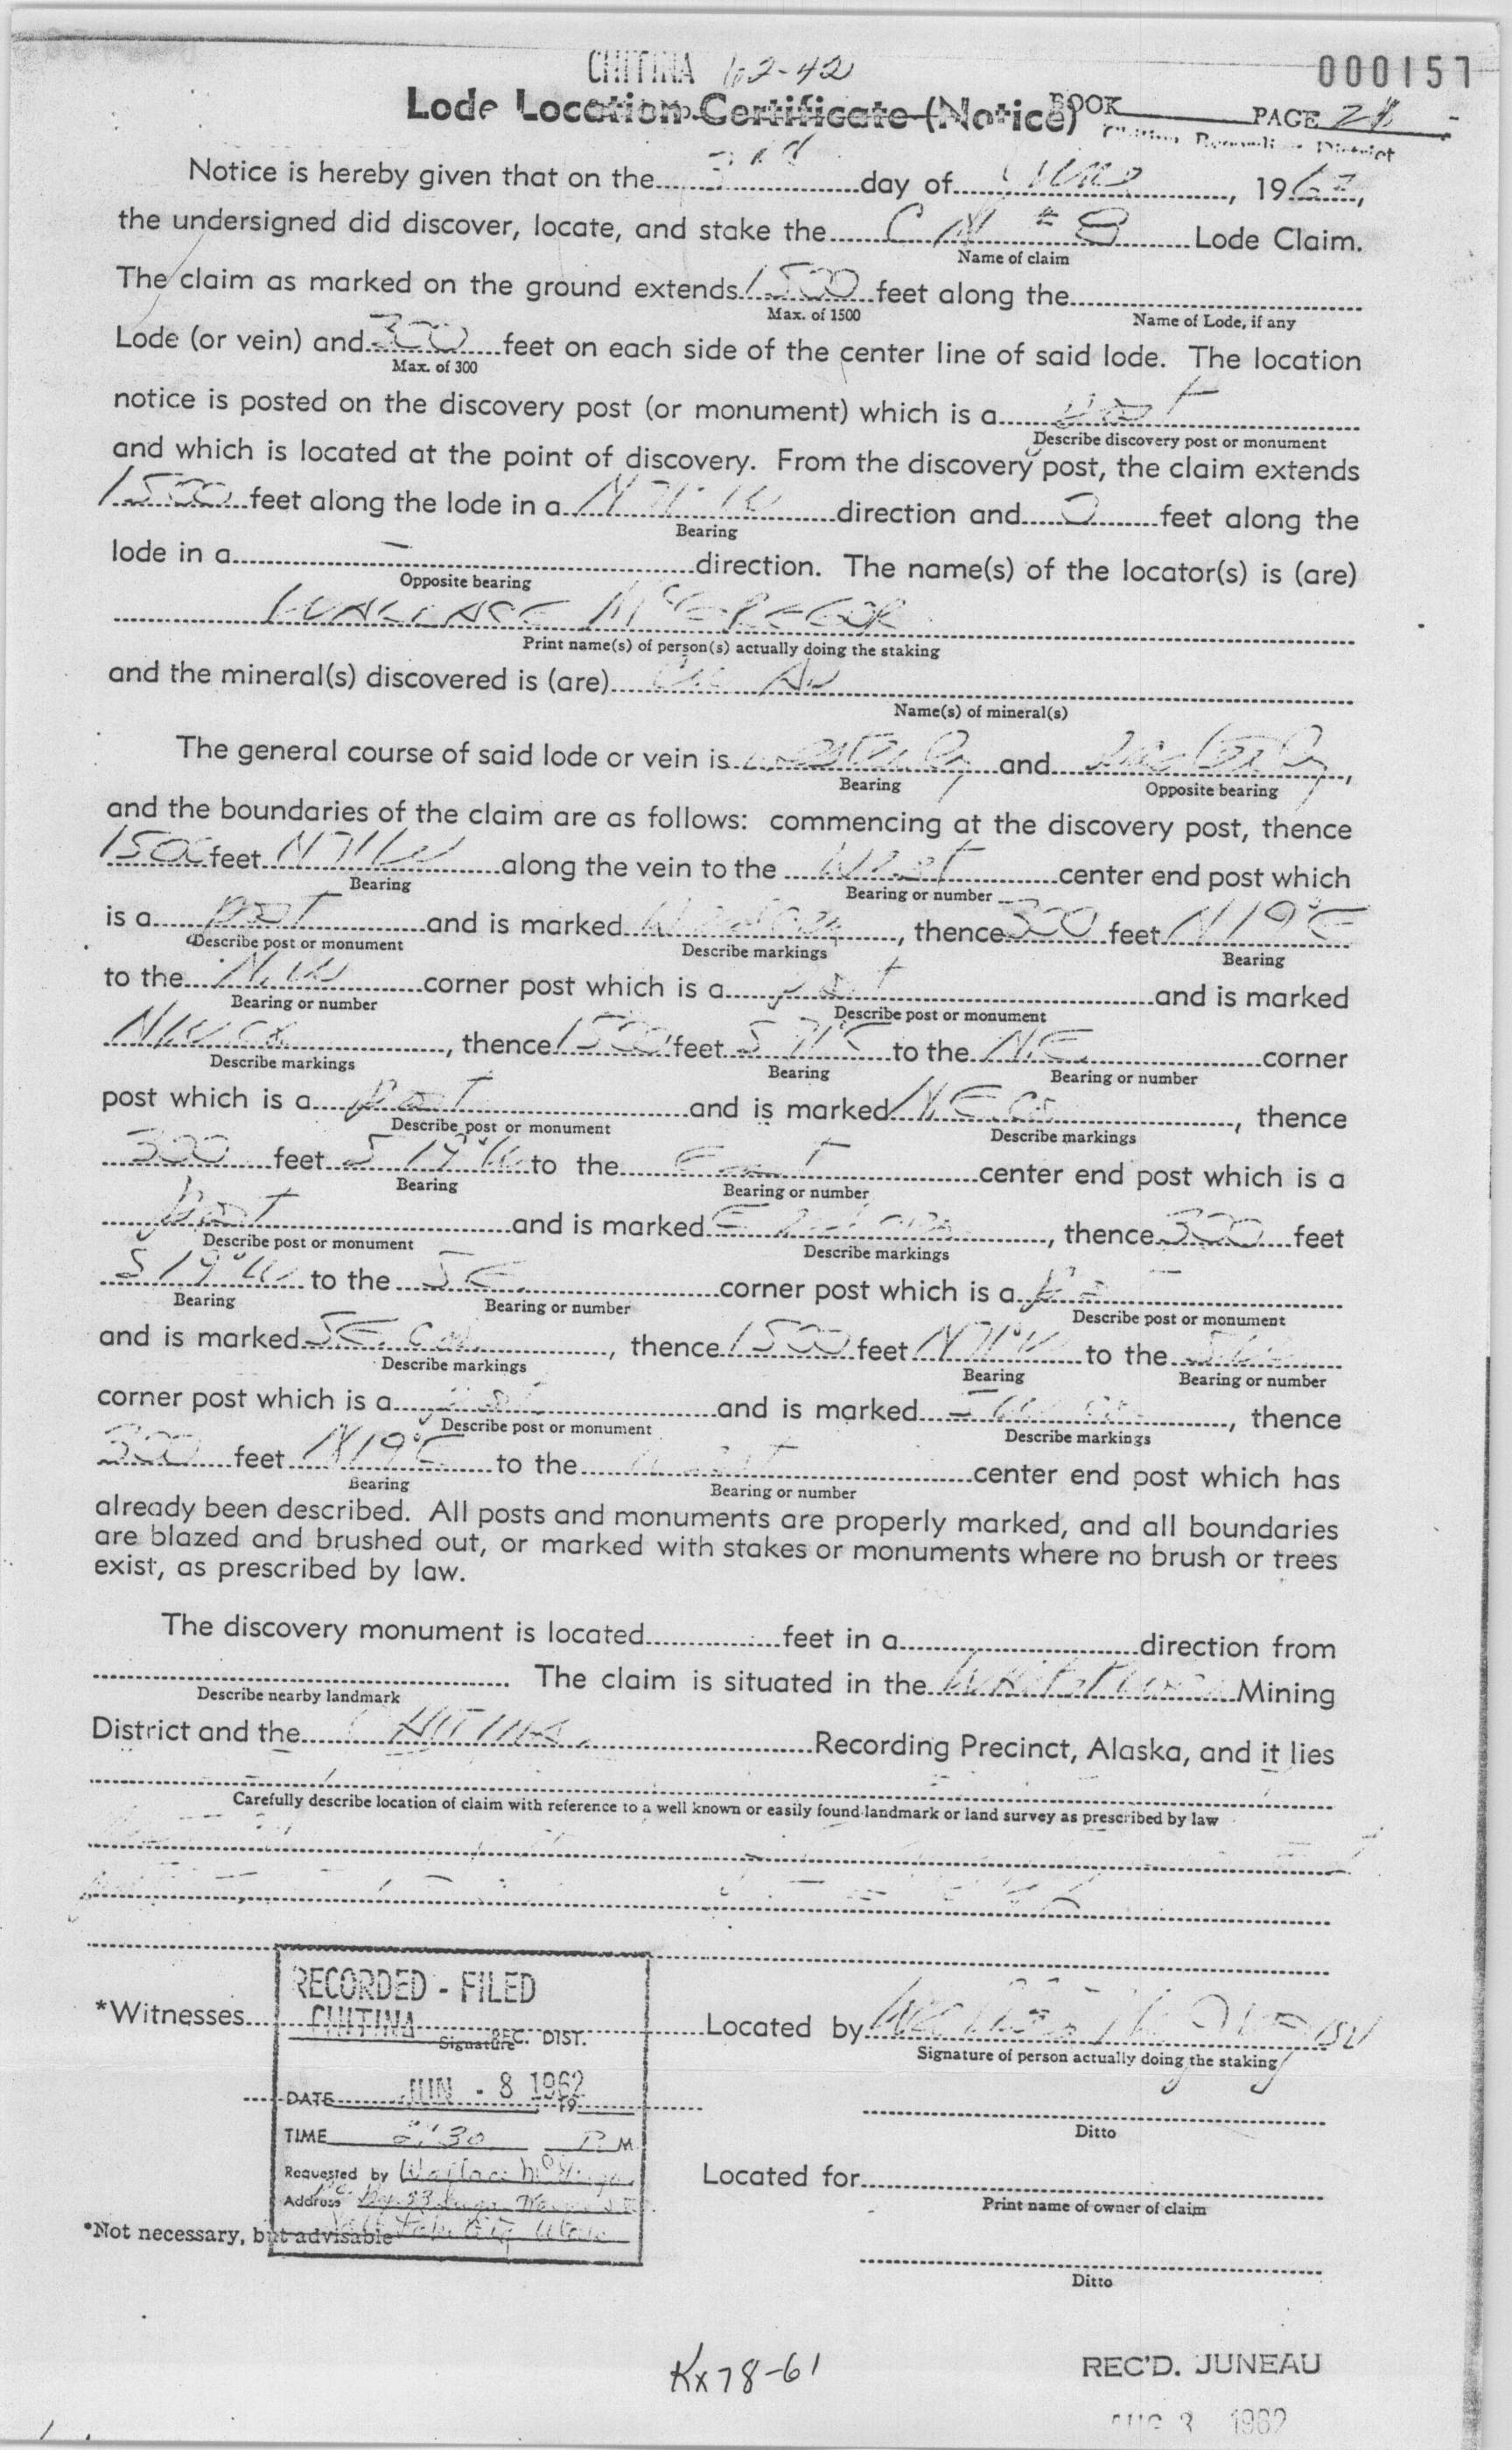 CHITINA 62-42
000157
Lode Location Certificate (Notice)
BOOK PAGE 28
Chitina Recording District
Notice is hereby given that on the 3rd day of June, 1962,
the undersigned did discover, locate, and stake the C N #8 Lode Claim.
Name of claim
The claim as marked on the ground extends 1500 feet along the
Max. of 1500 Name of Lode, if any
Lode (or vein) and 300 feet on each side of the center line of said lode. The location
Max. of 300
notice is posted on the discovery post (or monument) which is a post
Describe discovery post or monument
and which is located at the point of discovery. From the discovery post, the claim extends
1500 feet along the lode in a N 71° W direction and 0 feet along the
Bearing
lode in a - direction. The name(s) of the locator(s) is (are)
Opposite bearing
WALLACE McGREGOR
Print name(s) of person(s) actually doing the staking
and the mineral(s) discovered is (are) Cu Au
Name(s) of mineral(s)
The general course of said lode or vein is westerly and easterly,
Bearing Opposite bearing
and the boundaries of the claim are as follows: commencing at the discovery post, thence
1500 feet N71W along the vein to the West center end post which
Bearing Bearing or number
is a post and is marked, thence 300 feet N19°E
Describe post or monument Describe markings Bearing
to the N.W corner post which is a post and is marked
Bearing or number Describe post or monument
NW cor, thence 1500 feet S 71°E to the N.E. corner
Describe markings Bearing Bearing or number
post which is a post and is marked N.E. cor, thence
Describe post or monument Describe markings
300 feet S 19°W to the East center end post which is a
Bearing Bearing or number
post and is marked E, thence 300 feet
Describe post or monument Describe markings
S 19°W to the SE. corner post which is a post
Bearing Bearing or number Describe post or monument
and is marked SE. cor., thence 1500 feet N71°W to the SW
Describe markings Bearing Bearing or number
corner post which is a post and is marked SW cor, thence
Describe post or monument Describe markings
300 feet N19°E to the west center end post which has
Bearing Bearing or number
already been described. All posts and monuments are properly marked, and all boundaries
are blazed and brushed out, or marked with stakes or monuments where no brush or trees
exist, as prescribed by law.
The discovery monument is located feet in a direction from
Describe nearby landmark The claim is situated in the Mining
District and the CHITINA Recording Precinct, Alaska, and it lies
Carefully describe location of claim with reference to a well known or easily found landmark or land survey as prescribed by law
RECORDED - FILED
CHITINA REC. DIST.
DATE JUN - 8 1962 19
TIME 2:30 P M
Requested by Wallace McGregor
Address
Salt Lake City Utah
*Witnesses
Signature
*Not necessary, but advisable
Located by Wallace McGregor
Signature of person actually doing the staking
Ditto
Located for
Print name of owner of claim
Ditto
Kx78-61
REC'D. JUNEAU
AUG 3 1962